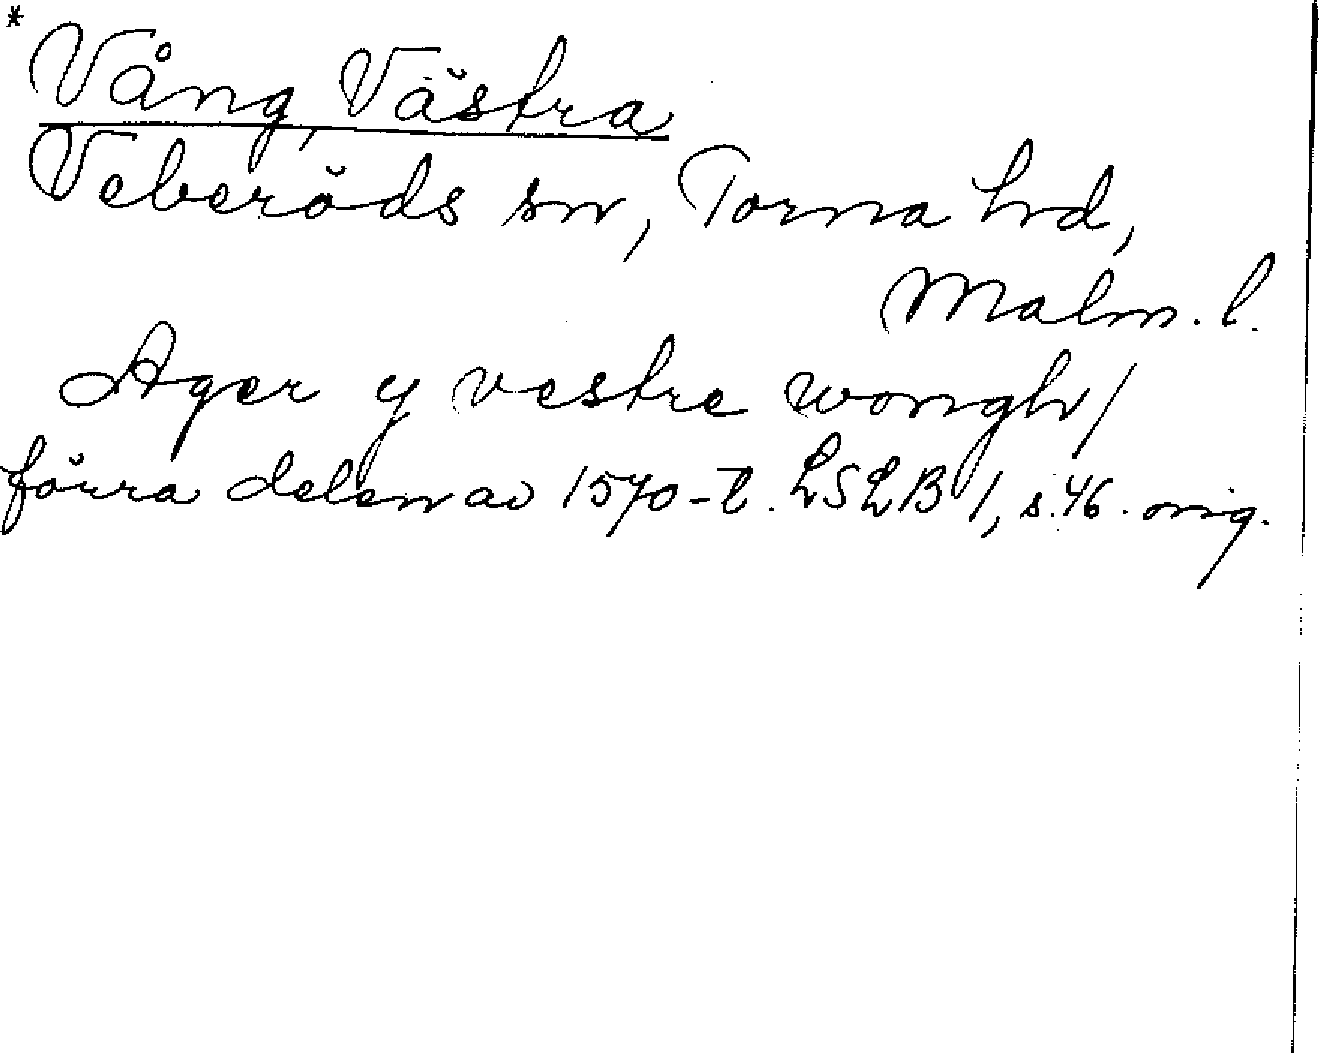 * Vång, Västra
Veberöds sn, Torna hd,
Malm. l.
Ager y vestre wongh/
förra delen av 1570-t. LSLB 1, s. 46. orig.